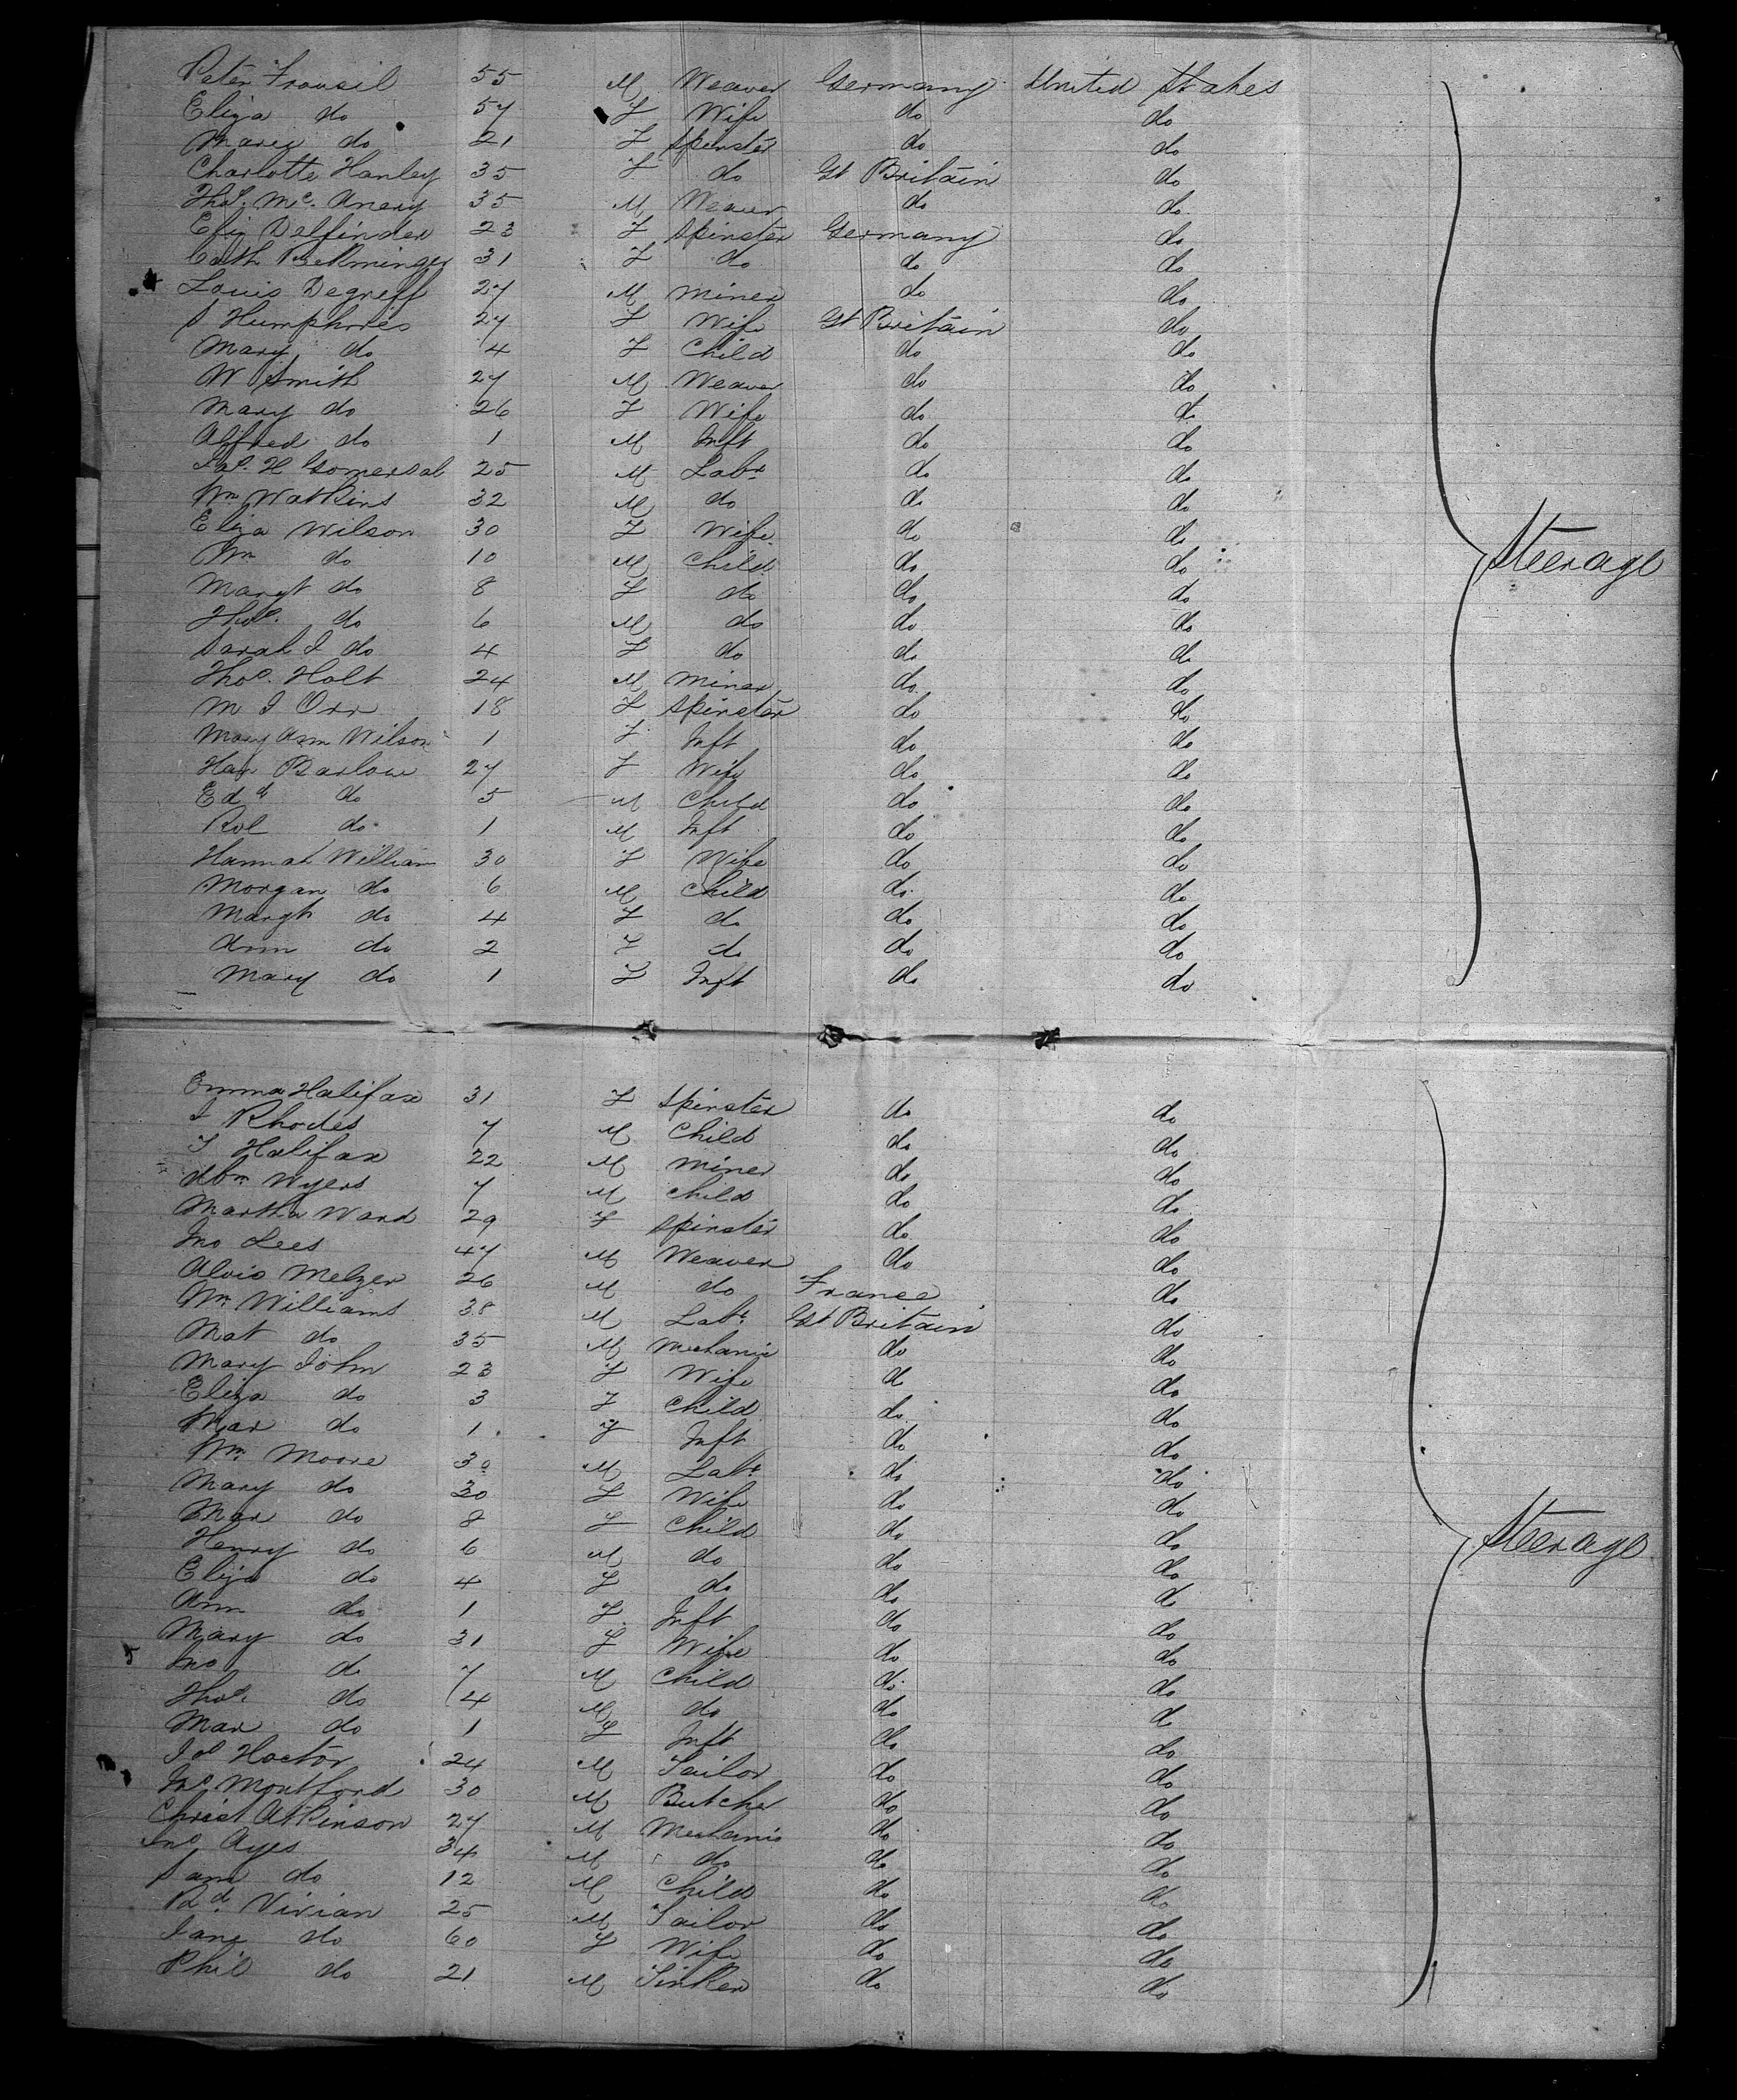 Peter Frousil 55 M Weaver Germany United States
Eliza do 57 F Wife do do
Mary do 21 F Spinster do do
Charlotte Hanley 35 F do Gt Britain do
Thos. Mc. Anery 35 M Weaver do do
Eliz Delfinder 23 F Spinster Germany do
Cath Bekminger 31 F do do do
Louis Degreff 27 M Miner do do
S Humphries 27 F Wife Gt Britain do
Mary do 4 F Child do do
W Smith 27 M Weaver do do
Mary do 26 F Wife do do
Alfred do 1 M Inft do do
Jas. H Gomersal 25 M Labr. do do
Wm Watkins 32 M do do do
Eliza Wilson 30 F Wife do do
Wm do 10 M Child do do
Steerage
Margt do 8 F do do do
Thos. do 6 M do do do
Sarah J do 4 F do do do
Thos. Holt 24 M Miner do do
M J Orr 18 F Spinster do do
Mary Ann Wilson 1 F Inft do do
Han Barlow 27 F Wife do do
Edd do 5 M Child do do
Rol do 1 M Inft do do
Hannah William 30 F Wife do do
Morgan do 6 M Child do do
Margt do 4 F do do do
Ann do 2 F do do do
Mary do 1 F Inft do do
Emma Halifax 31 F Spinster do do
J Rhodes 7 M Child do do
J Halifax 22 M Miner do do
Wyers 7 M Child do do
Martha Ward 29 F Spinster do do
Jno Lees 47 M Weaver do do
Alois Melzer 26 M do France do
Wm Williams 38 M Labr. Gt Britain do
Mat do 35 M Mechanic do do
Mary John 23 F Wife do do
Eliza do 3 F Child do do
Mar do 1 F Inft do do
Wm Moore 30 M Labr. do do
Mary do 30 F Wife do do
Mar do 8 F Child do do
Steerage
Henry do 6 M do do do
Eliza do 4 F do do do
Ann do 1 F Inft do do
Mary do 31 F Wife do do
Jno do 7 M Child do do
Thos. do 4 M do do do
Mar do 1 F Inft do do
Jos Hector 24 M Tailor do do
Jno Montford 30 M Butcher do do
Christ Atkinson 27 M Mechanic do do
Jno Ayes 34 M do do do
Sam do 12 M Child do do
Rd. Vivian 25 M Tailor do do
Jane do 60 F Wife do do
Phil do 21 M Tinker do do